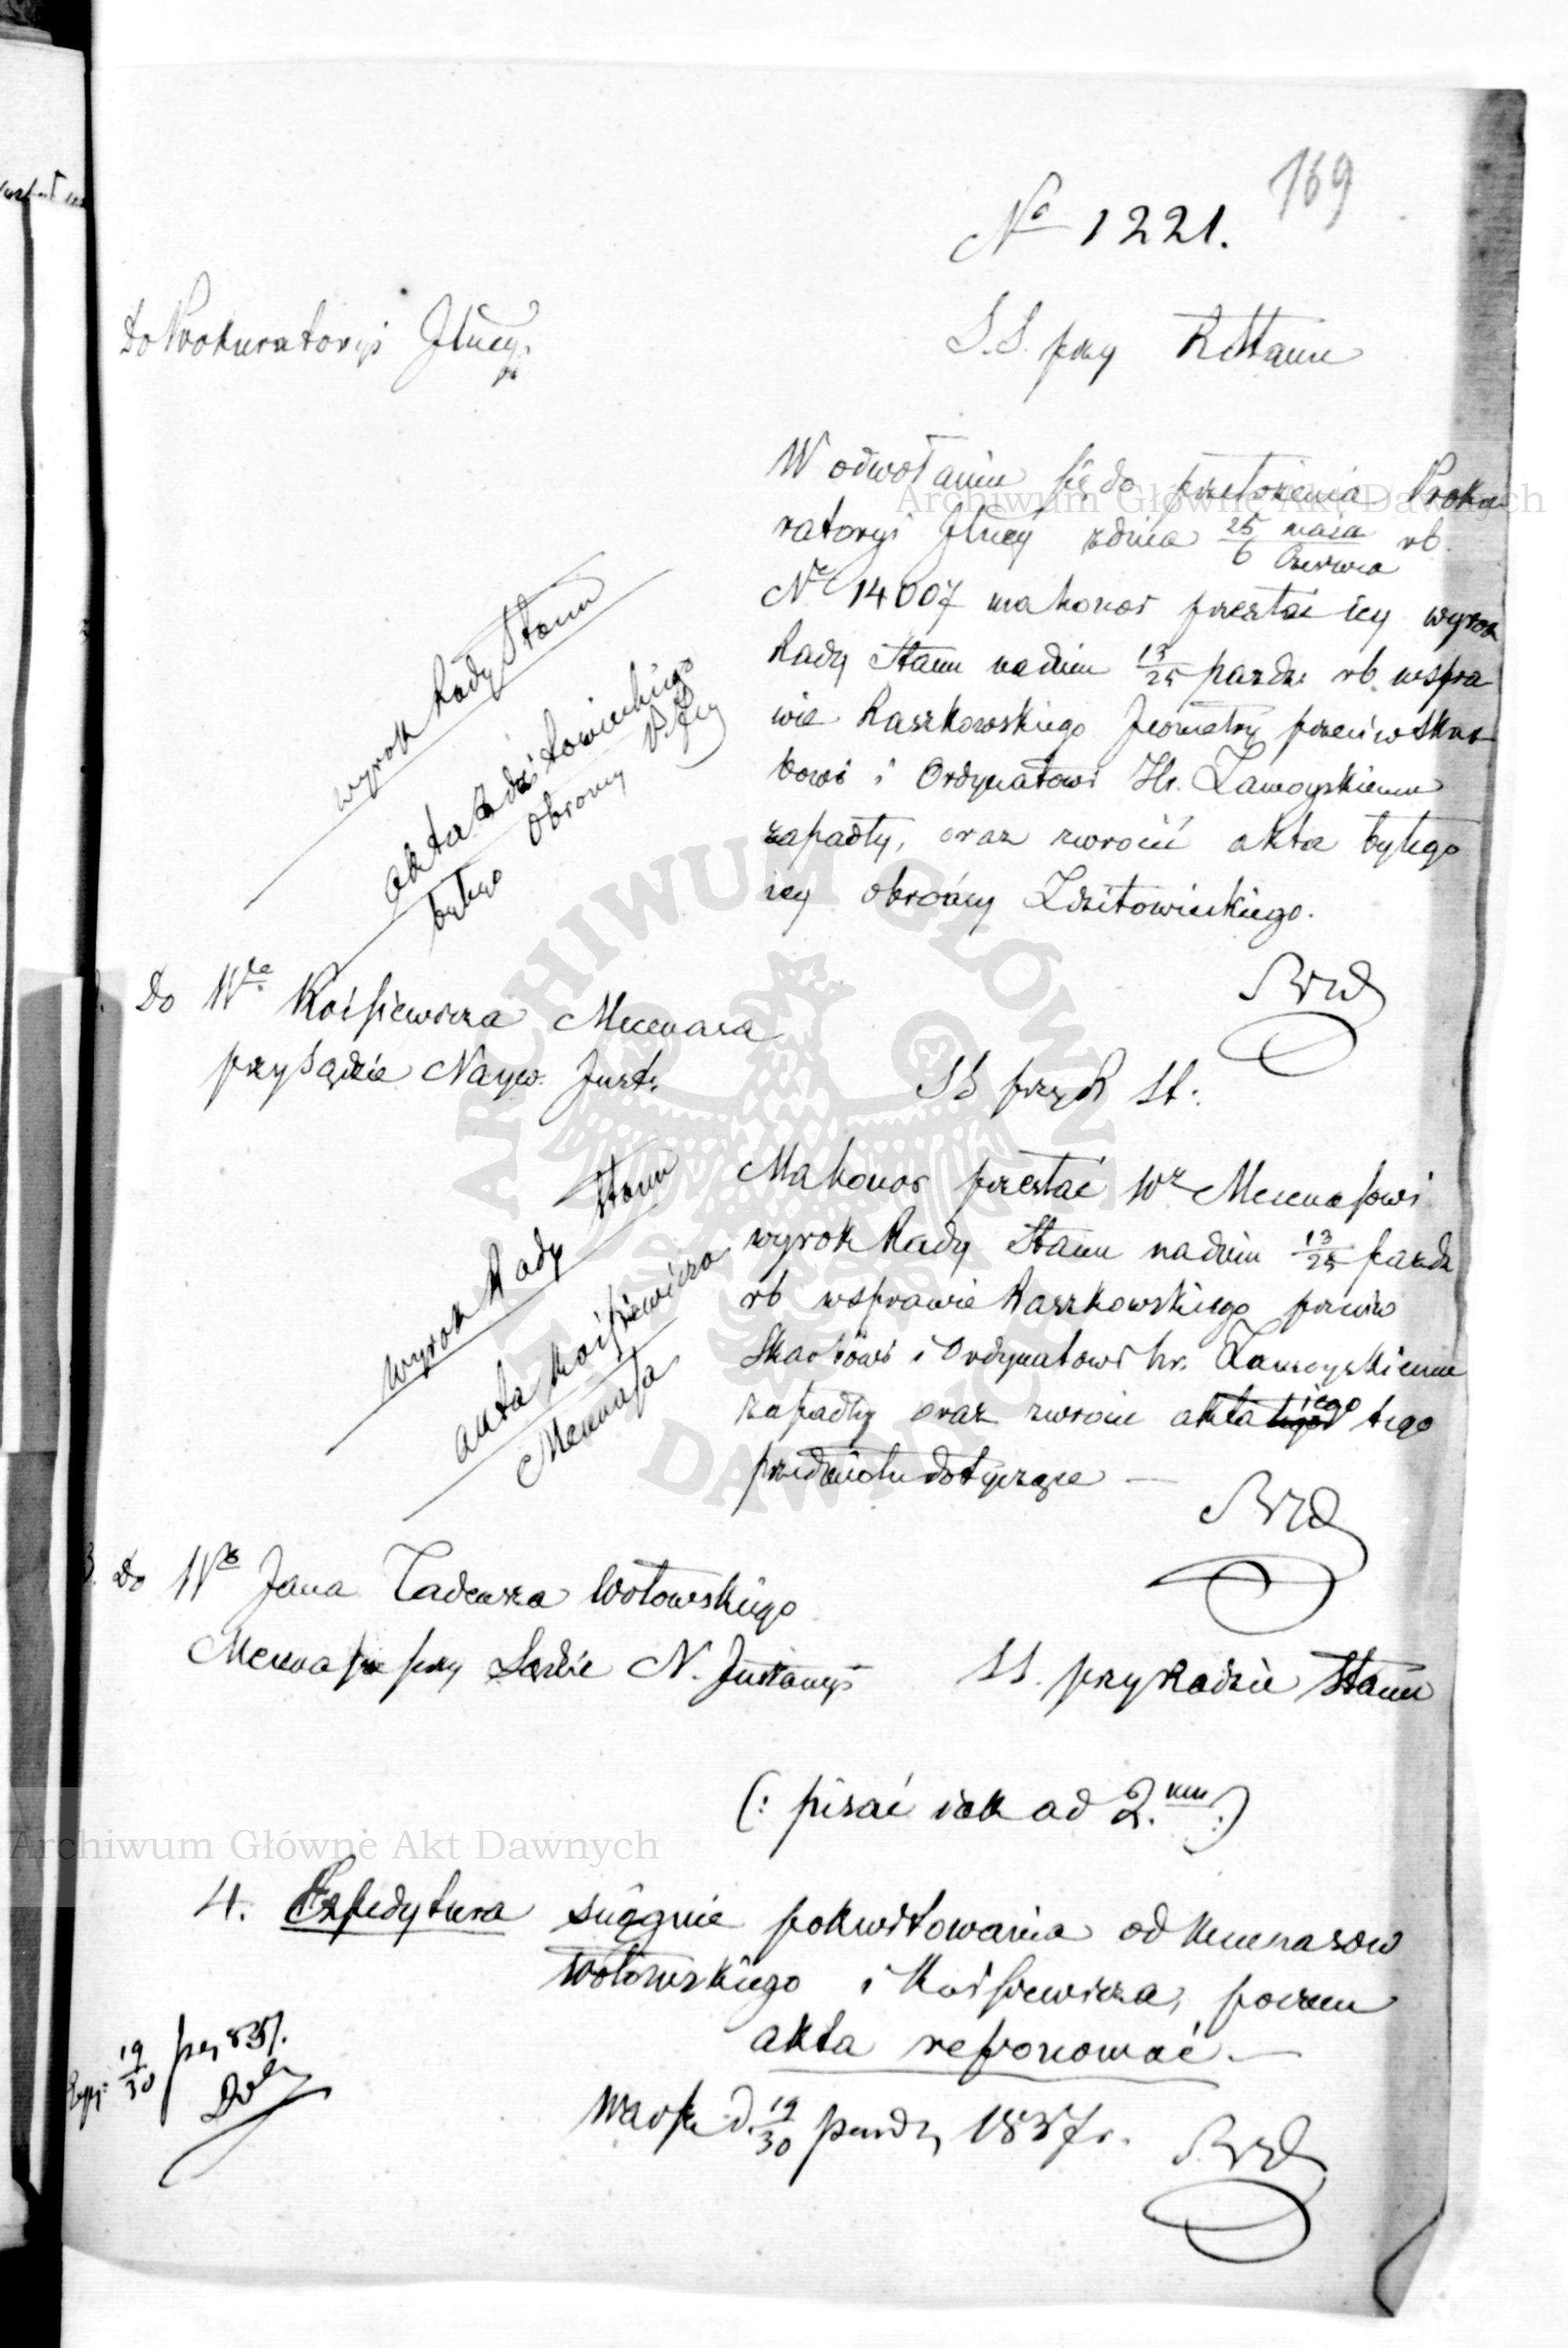 169
No 1221.
Do Prokuratoryi
S.S. przy R Stanu
W odwołaniu się do przełożenia Proku
ratoryi z dnia 25 maja / 6 Czerwca rb.
No 14007 ma honor przesłać iey wyrok
Rady Stanu na dniu 13/25 paźdz. rb. w spra
wie Raszkowskiego Jeometry przeciw Skar
bowi i Ordynatowi Hr. Zamoyskiemu
zapadły, oraz zwrócić akta byłego
iey obrońcy Zdzitowieckiego.
wyrok Rady Stanu
akta Zdzitowieckiego
byłego Obrońcy
Do Wo Koissiewicza Mecenasa
przy Sądzie Nayw. Just.
SS przy R St:
Ma honor przesłać Wu Mecenasowi
wyrok Rady Stanu na dniu 13/25 paźdz
rb w sprawie Raszkowskiego przeciw
Skarbowi i Ordynatowi hr. Zamoyskiemu
zapadły oraz zwrócić akta iego tego
przedmiotu dotyczące —
wyrok Rady Stanu
akta Koissiewicza
Mecenasa
3. Do Wo Jana Tadeusza Wołowskiego
Mecenasa przy Sądzie N. Instancyi
SS. przy Radzie Stanu
(: pisać iak ad 2.um :)
4. Expedytura sciągnie pokwitowania od Mecenasow
Wołowskiego i Koissiewicza, poczem
akta reponować. —
Warsz. d. 19/30 paźdz 1837 r.
Exp: 19/30 paź 837.
Archiwum Główne Akt Dawnych
ARCHIWUM GŁÓWNE
AKT DAWNYCH
Archiwum Główne Akt Dawnych